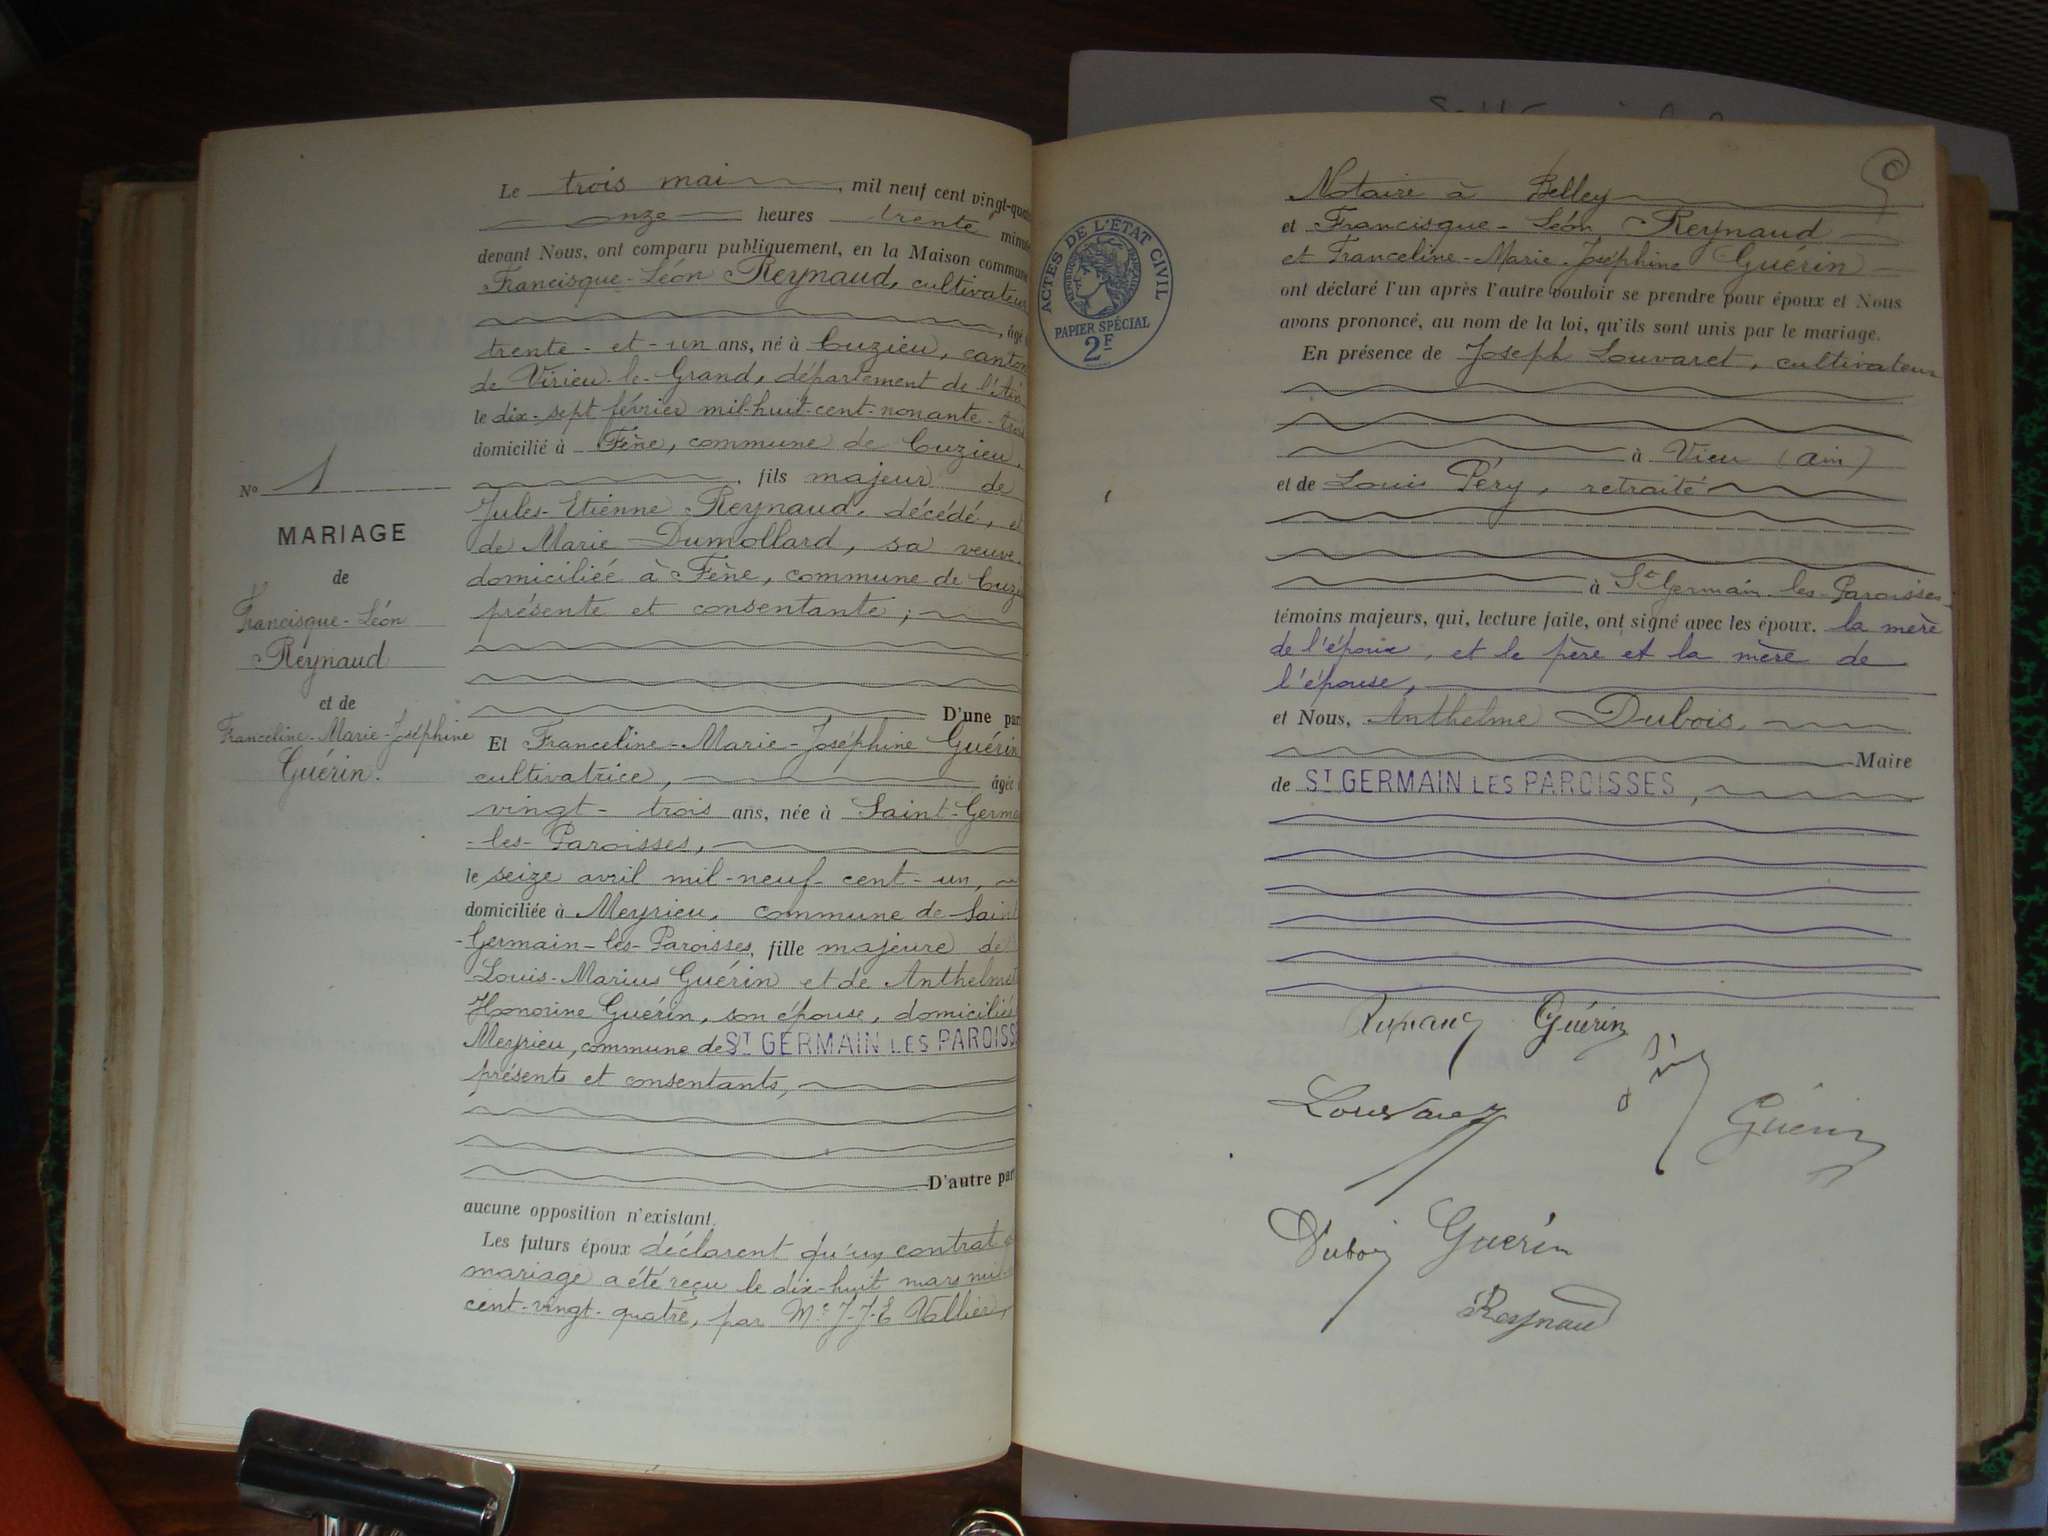 Le trois mai, mil neuf cent vingt-quat
onze heures trente minute
devant Nous, ont comparu publiquement, en la Maison commune
Francisque-Léon Reynaud, cultivateur
, âgé
trente-et-un ans, né à Cuzieu, canton
de Virieu-le-Grand, département de l'Ain
le dix-sept février mil-huit-cent-nonante-trois
domicilié à Fène, commune de Cuzieu,
, fils majeur de
Jules-Etienne Reynaud, décédé, et
de Marie Dumollard, sa veuve,
domiciliée à Fène, commune de Cuzi
présente et consentante;
D'une par
Et Franceline-Marie-Joséphine Guérin
cultivatrice, âgée
vingt-trois ans, née à Saint-Germa
-les-Paroisses,
le seize avril mil-neuf-cent-un,
domiciliée à Meyrieu, commune de Saint
-Germain-les-Paroisses, fille majeure de
Louis-Marius Guérin et de Anthelme
Honorine Guérin, son épouse, domiciliés
Meyrieu, commune de ST GERMAIN LES PAROISS
présents et consentants,
D'autre part
aucune opposition n'existant.
Les futurs époux déclarent qu'un contrat
mariage a été reçu le dix-huit mars mil
cent-vingt-quatre, par Me J-J-E Vallier,
No 1
MARIAGE
de
Francisque-Léon
Reynaud
et de
Franceline-Marie-Joséphine
Guérin.
ACTES DE L'ETAT CIVIL
REPUBLIQUE FRANÇAISE
PAPIER SPÉCIAL
2F
Notaire à Belley
et Francisque-Léon Reynaud
et Franceline-Marie-Joséphine Guérin
ont déclaré l'un après l'autre vouloir se prendre pour époux et Nous
avons prononcé, au nom de la loi, qu'ils sont unis par le mariage.
En présence de Joseph Louvaret, cultivateur
à Vieu (Ain)
et de Louis Péry, retraité
à St Germain-les-Paroisses
témoins majeurs, qui, lecture faite, ont signé avec les époux, la mère
de l'époux, et le père et la mère de
l'épouse,
et Nous, Anthelme Dubois,
Maire
de ST GERMAIN LES PAROISSES,
Reynaud Guérin
Louvaret
Guérin
Dubois Guérin
Reynaud